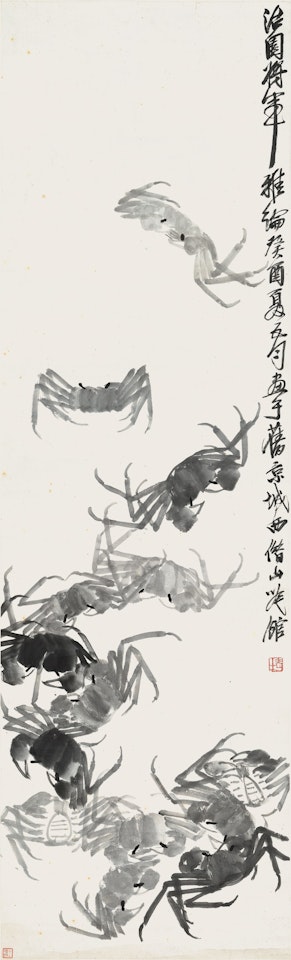 治園將軍雅論癸酉夏五句畫于舊京城西借山吟館